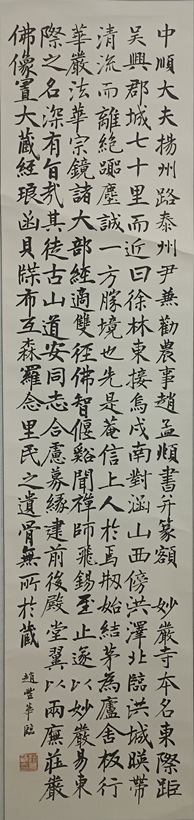 中順大夫揚州路泰州尹兼勸農事趙孟頫書并篆額 妙嚴寺本名東際距
吳興郡城七十里而近曰徐林東接烏戍南對涵山西傍洪澤北臨洪城暎帶
清流而離絕囂塵誠一方勝境也先是菴信上人於焉刱始結茅為廬舍板行
華嚴法華宗鏡諸大部經適雙徑佛智偃谿聞禪師飛錫至止遂以妙嚴易東
際之名深有旨哉其徒古山道安同志合慮募緣建前後殿堂翼以兩廡莊嚴
佛像置大藏經琅函貝牒布互森羅念里民之遺骨無所於藏
趙豐華臨